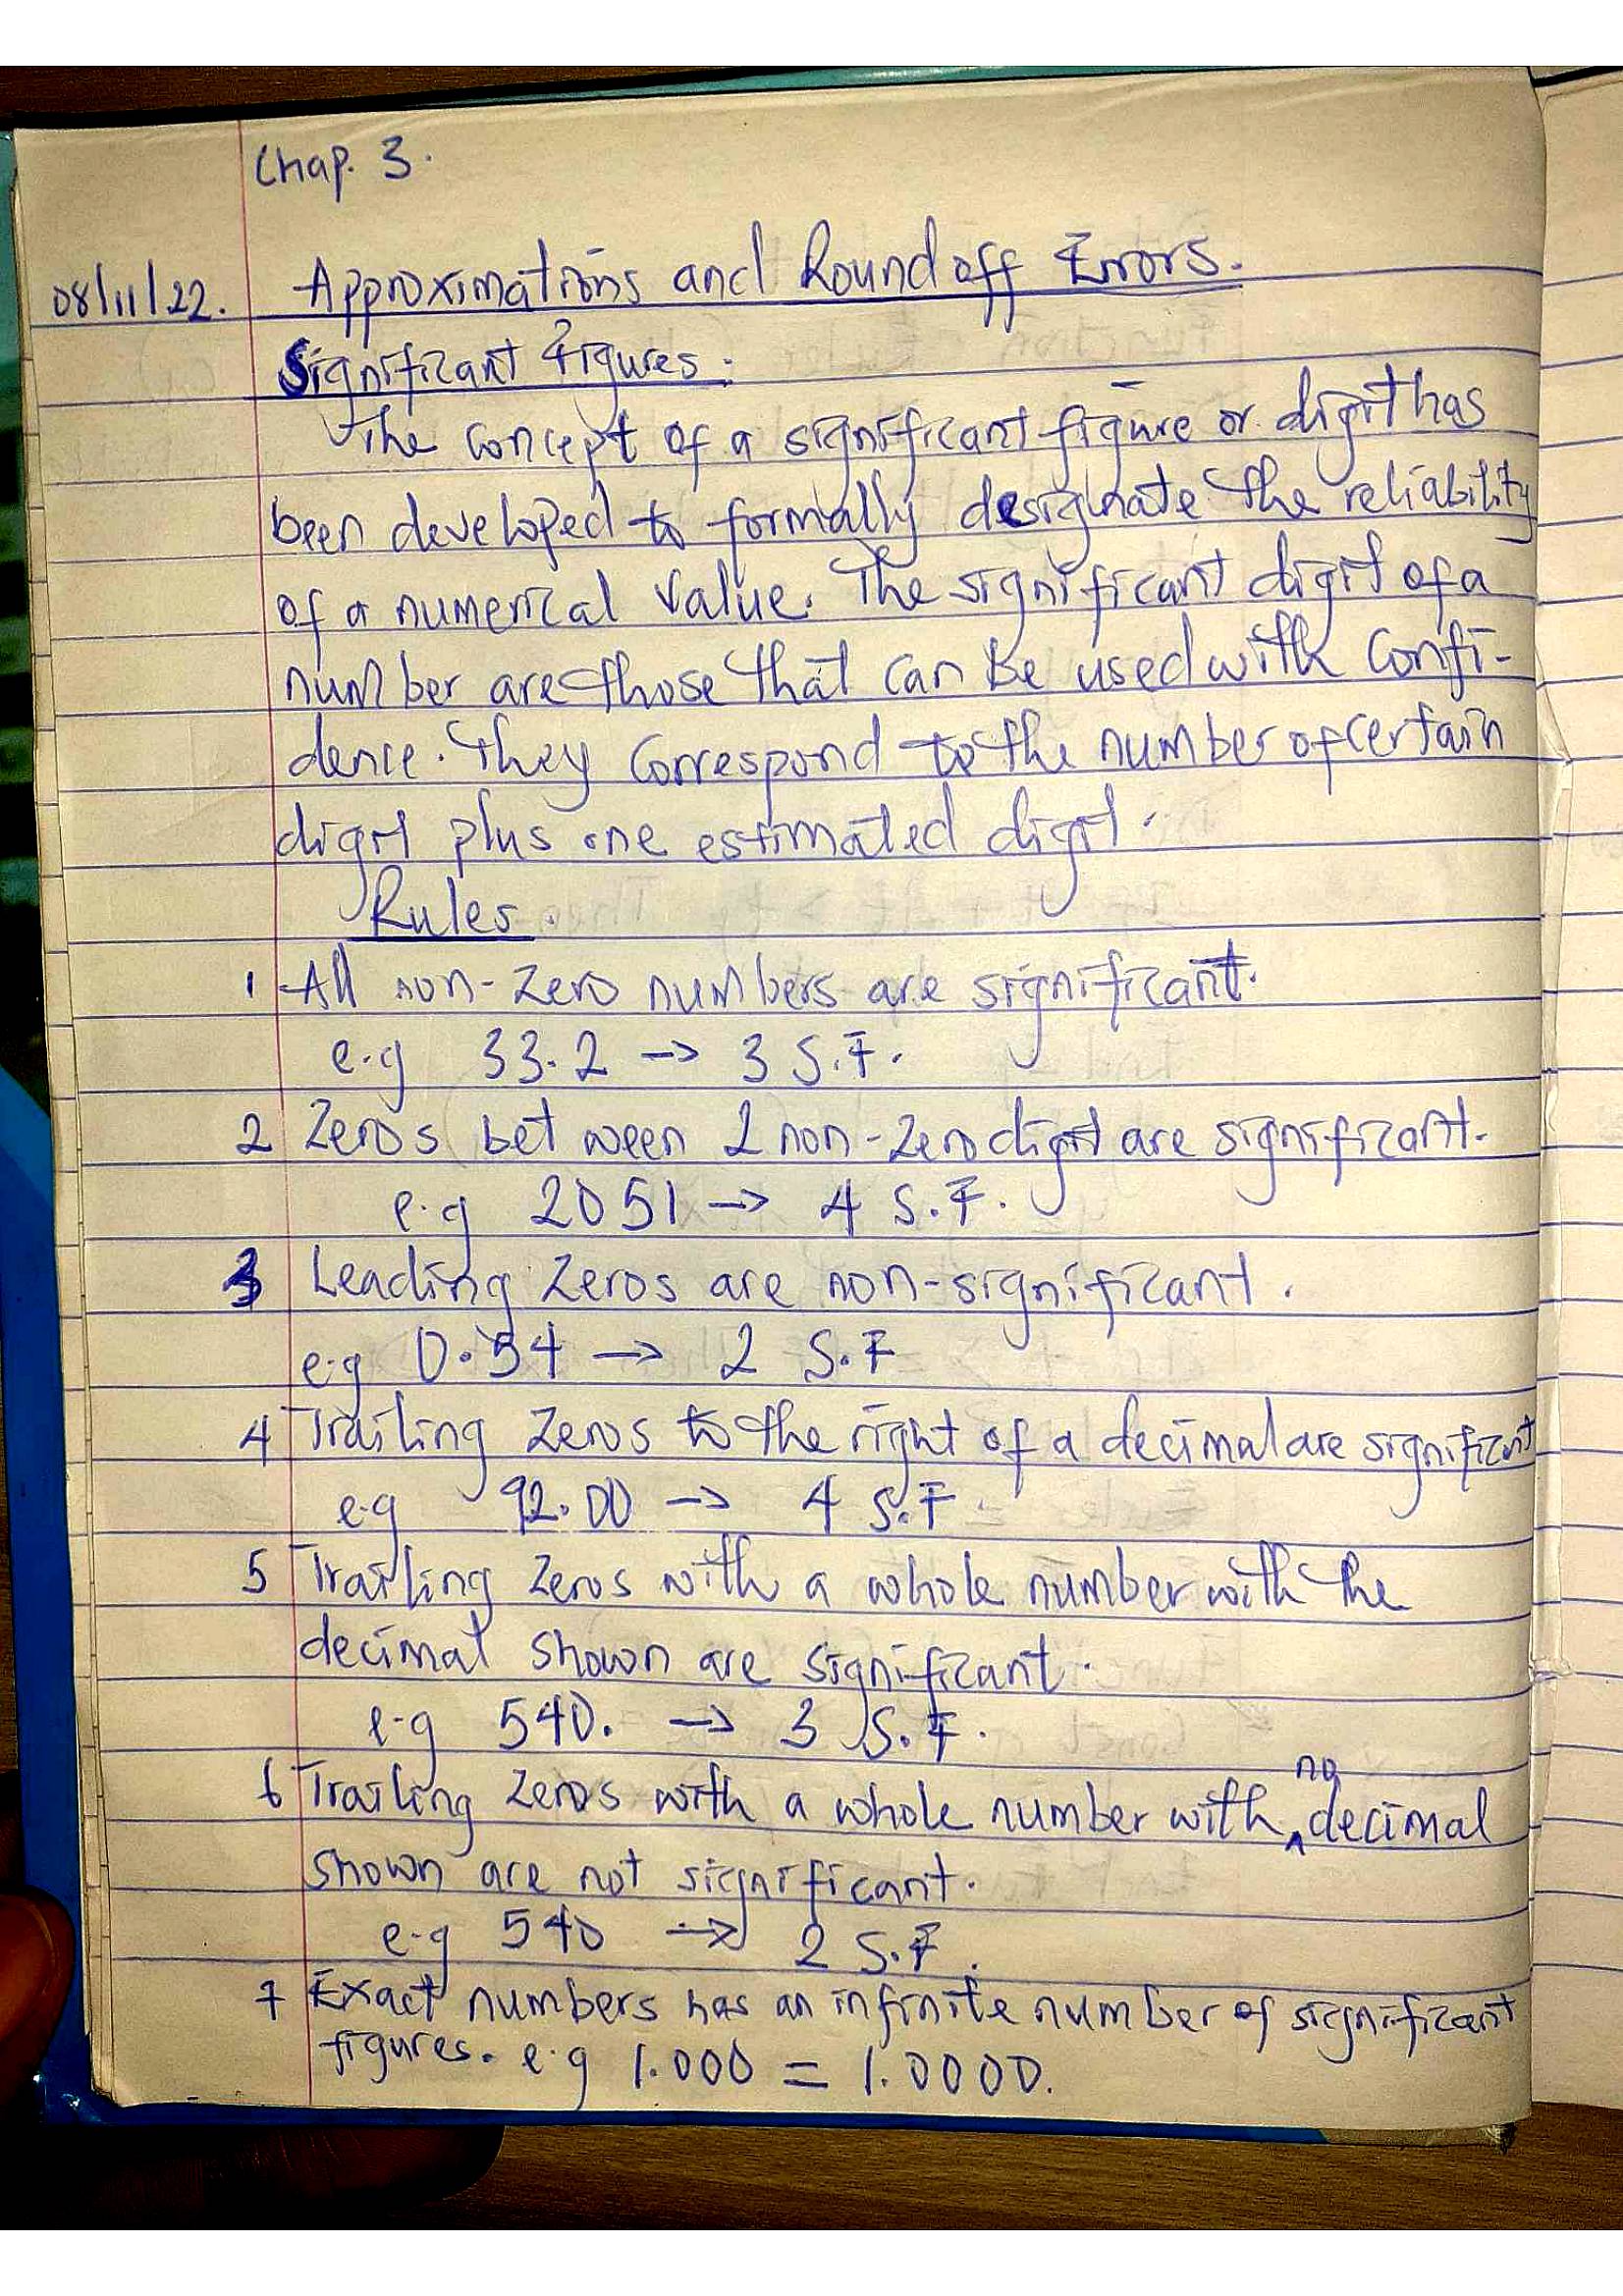 Chap. 3.
08/11/22. Approximations and Round off Errors.
Significant figures.
The concept of a significant figure or digit has
been developed to formally designate the reliability
of a numerical value. The significant digit of a
number are those that can be used with confi-
dence. They correspond to the number of certain
digit plus one estimated digit.
Rules.
1 All non-zero numbers are significant.
e.g 33.2 -> 3 S.F.
2 Zeros between 2 non-zero digit are significant.
e.g 2051 -> 4 S.F.
3 Leading zeros are non-significant.
e.g 0.54 -> 2 S.F
4 Trailing zeros to the right of a decimal are significant
e.g 92.00 -> 4 S.F
5 Trailing zeros with a whole number with the
decimal shown are significant.
e.g 540. -> 3 S.F.
6 Trailing zeros with a whole number with no decimal
shown are not significant.
e.g 540 -> 2 S.F.
7 Exact numbers has an infinite number of significant
figures. e.g 1.000 = 1.0000.